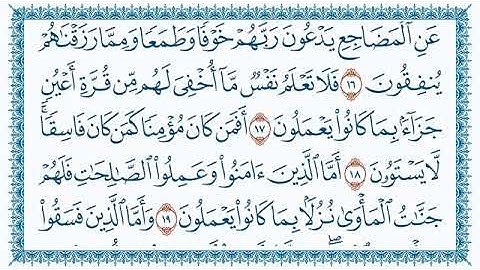 عَنِ ٱلْمَضَاجِعِ يَدْعُونَ رَبَّهُمْ خَوْفًا وَطَمَعًا وَمِمَّا رَزَقْنَٰهُمْ
يُنفِقُونَ ١٦ فَلَا تَعْلَمُ نَفْسٌ مَّآ أُخْفِىَ لَهُم مِّن قُرَّةِ أَعْيُنٍ
جَزَآءًۢ بِمَا كَانُوا۟ يَعْمَلُونَ ١٧ أَفَمَن كَانَ مُؤْمِنًا كَمَن كَانَ فَاسِقًا ۚ
لَّا يَسْتَوُۥنَ ١٨ أَمَّا ٱلَّذِينَ ءَامَنُوا۟ وَعَمِلُوا۟ ٱلصَّٰلِحَٰتِ فَلَهُمْ
جَنَّٰتُ ٱلْمَأْوَىٰ نُزُلًۢا بِمَا كَانُوا۟ يَعْمَلُونَ ١٩ وَأَمَّا ٱلَّذِينَ فَسَقُوا۟